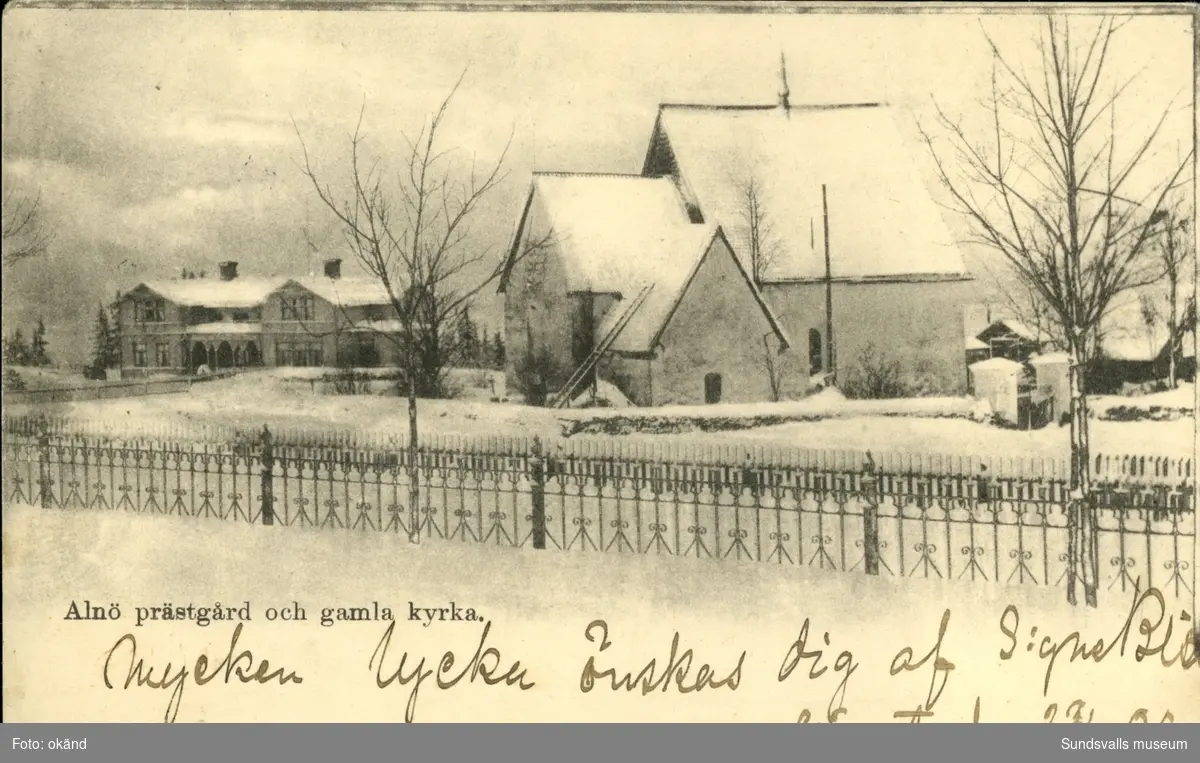 Alnö prästgård och gamla kyrka.
Mycken lycka önskas dig af Signe
Foto: okänd
Sundsvalls museum